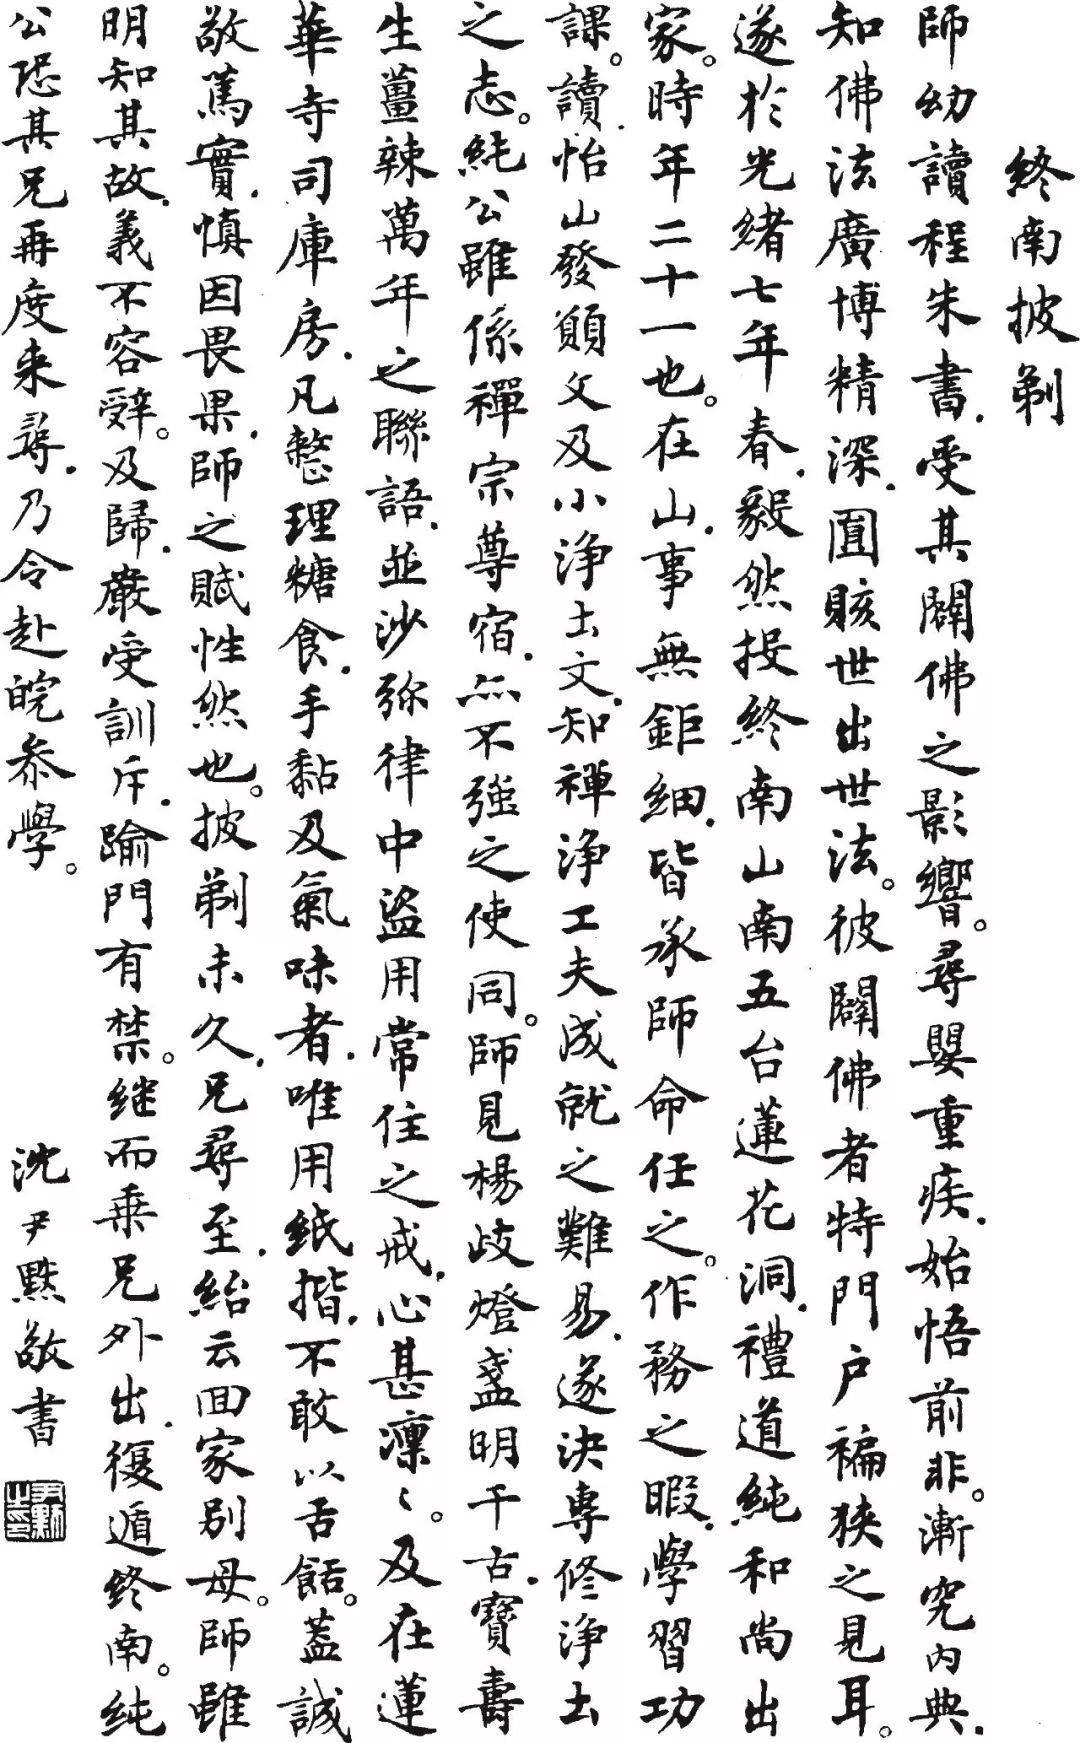 終南披剃
師幼讀程朱書.受其闢佛之影響。尋嬰重疾.始悟前非。漸究内典.
知佛法廣博精深.圓賅世出世法。彼闢佛者特門户褊狹之見耳。
遂於光緒七年春.毅然投終南山南五台蓮花洞.禮道純和尚出
家。時年二十一也。在山.事無鉅細.皆承師命任之。作務之暇.學習功
課。讀.怡山發願文及小淨土文.知禪淨工夫成就之難易.遂決專修淨土
之志。純公雖係禪宗尊宿.亦不強之使同。師見楊歧燈盞明千古.寶壽
生薑辣萬年之聯語.並沙弥律中盜用常住之戒.心甚凜〻。及在蓮
華寺司庫房.凡整理糖食.手黏及氣味者.唯用紙揩.不敢以舌餂。蓋誠
敬篤實.慎因畏果.師之賦性然也。披剃未久.兄尋至.紿云回家别母。師雖
明知其故.義不容辭。及歸.嚴受訓斥.踰門有禁。继而乘兄外出.復遁終南。純
公恐其兄再度来尋.乃令赴皖叅學。
沈尹默敬書
尹默之印